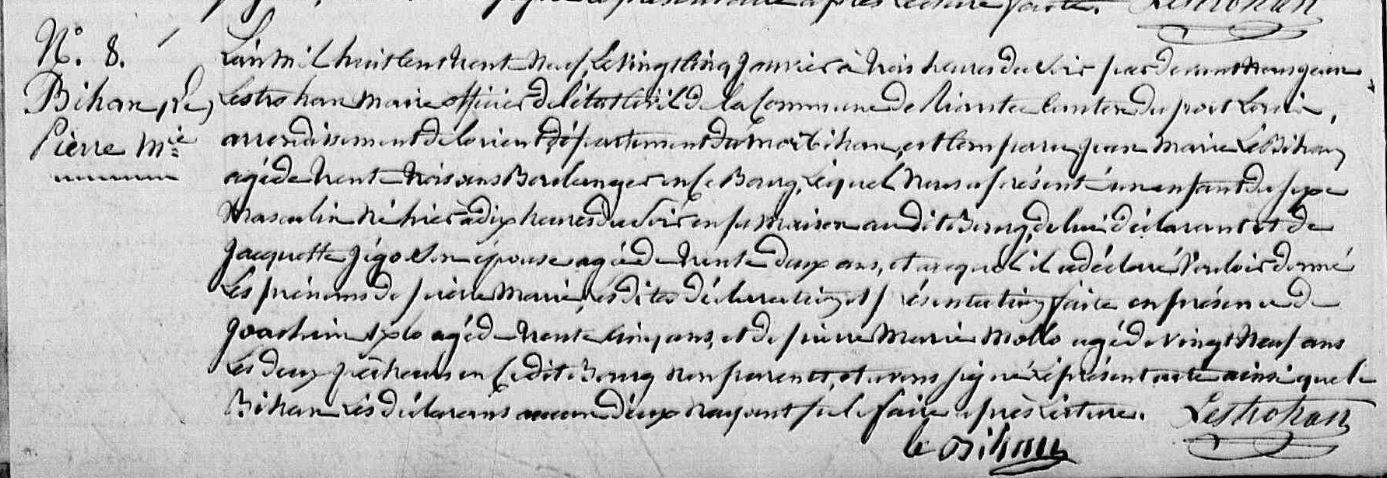 signé le présent acte après lecture faite. Lestrohan
N° 8.
Bihan, (Le)
Pierre Mie
L'an mil huit cent trent neuf, le vingt cinq Janvier à trois heures du soir par devant nous jean
Lestrohan maire officier de l'état Civil de la Commune de Riantec Canton du port Louis,
arrondissement de Lorient, département du Morbihan, est Comparu jean Marie Le Bihan
agé de trente trois ans Boulanger en ce Bourg, lequel nous a présenté un enfant du sexe
masculin né hier à dix heures du soir en sa maison au dit Bourg, de lui déclarant et de
Jacquette Jégo son épouse agé de trente deux ans, et auquel il a déclaré vouloir donné
les prénoms de pierre Marie, lesdites déclaration et présentation faite en présence de
Joachim agé de trente cinq ans, et de pierre Marie Mollo agé de vingt neuf ans
les deux pêcheurs en ce dit Bourg non parents, et avons signé le présent acte ainsi que le
Bihan les déclarans aucun d'eux n'ayant su le faire après lecture. Lestrohan
le Bihan